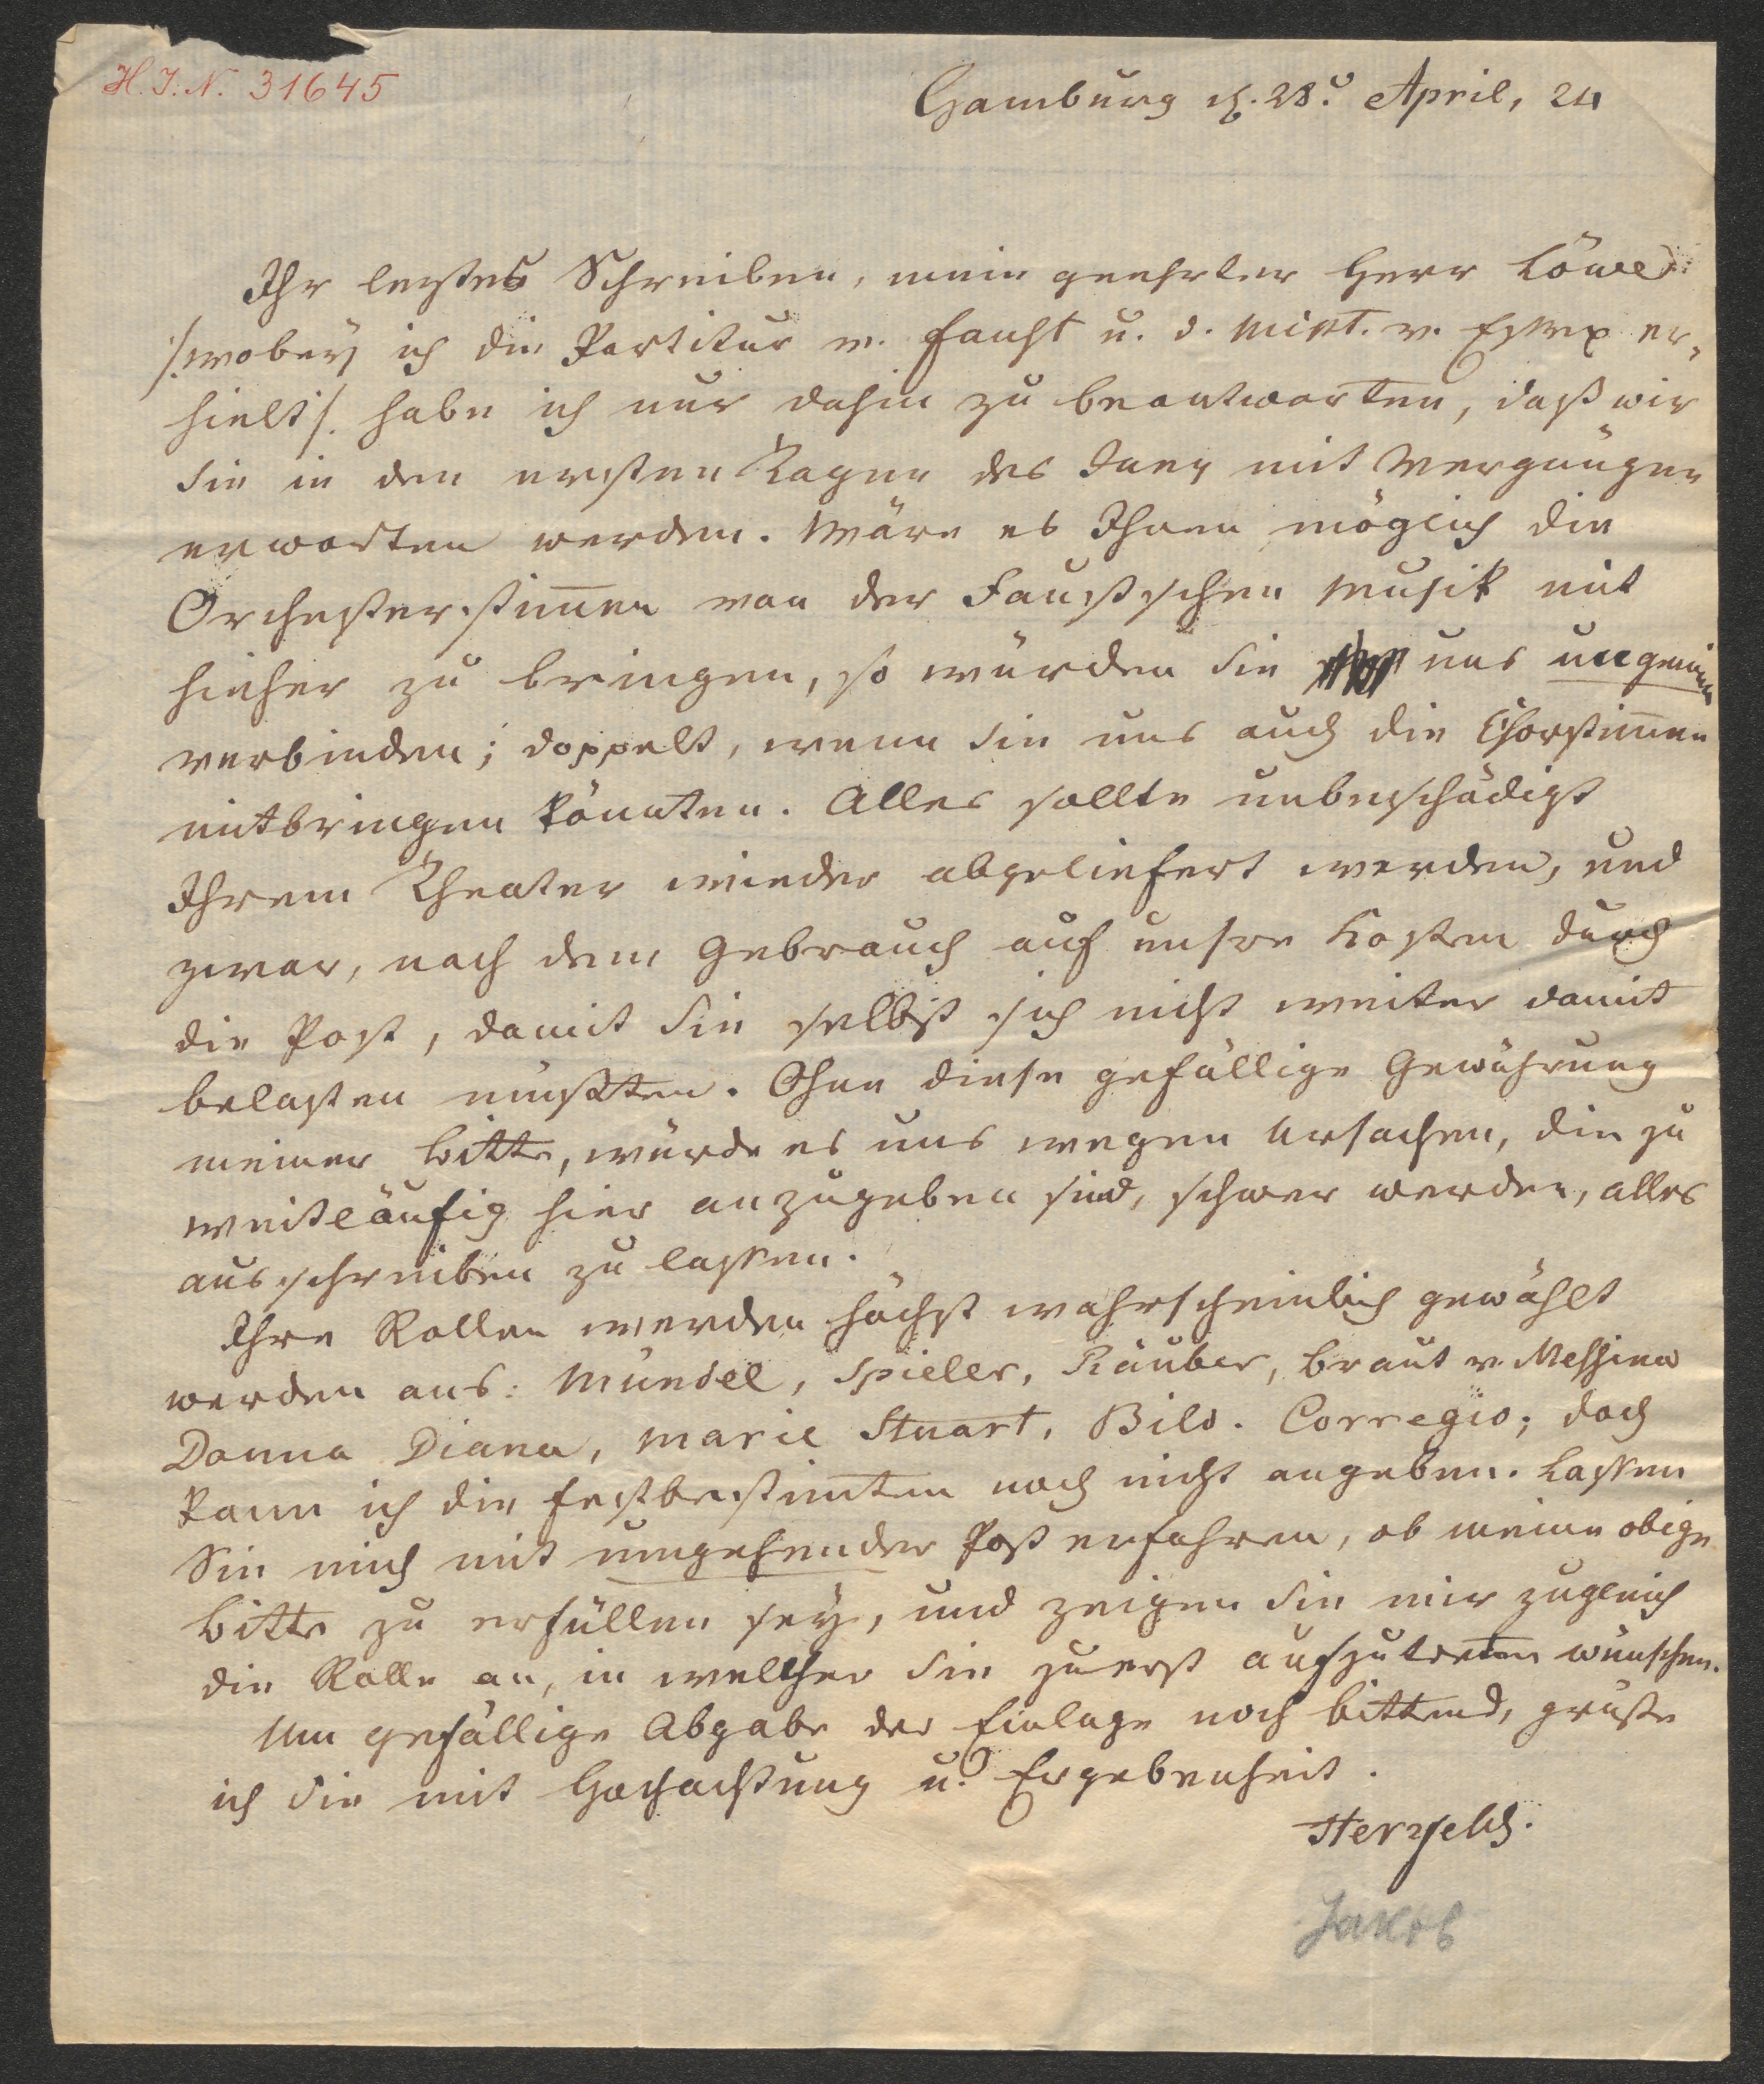 H. I. N. 31645
Hamburg d. 28. April, 24
Ihr letztes Schreiben, mein geehrter Herr Löwe
/: wobey ich die Partitur v. Faust u. d. Mspt. v. Essex er-
hielt :/ habe ich nur dahin zu beantworten, daß wir
Sie in den ersten Tagen des Juny mit Vergnügen
erwarten werden. Wäre es Ihnen möglich die
Orchesterstim̄en von der Faustschen Musik mit
hieher zu bringen, so würden Sie uns ungemein
verbinden; doppelt, wenn Sie uns auch die Chorstim̄en
mitbringen könnten. Alles sollte unbeschädigt
Ihrem Theater wieder abgeliefert werden, und
zwar, nach dem Gebrauch auf unsre Kosten durch
die Post, damit Sie selbst sich nicht weiter damit
belasten müßten. Ohne diese gefällige Gewährung
meiner Bitte, würde es uns wegen Ursachen, die zu
weitläufig hier anzugeben sind, schwer werden, alles
ausschreiben zu lassen.
Ihre Rollen werden höchst wahrscheinlich gewählt
werden aus: Mündel, Spieler, Räuber, Braut v. Messina
Donna Diana, Marie Stuart, Bild. Corregio; doch
kann ich die festbestim̄ten noch nicht angeben. Lassen
Sie mich mit umgehender Post erfahren, ob meine obige
Bitte zu erfüllen sey, und zeigen Sie mir zugleich
die Rolle an, in welcher Sie zuerst aufzutreten wünschen.
Um gefällige Abgabe der Einlage noch bittend, grüße
ich Sie mit Hochachtung u. Ergebenheit.
Herzfeld.
Jakob